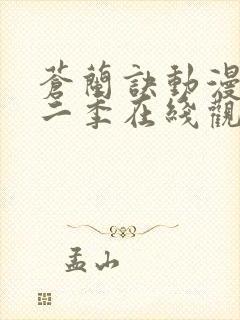 蒼蘭訣動漫
二季在綫觀
孟山